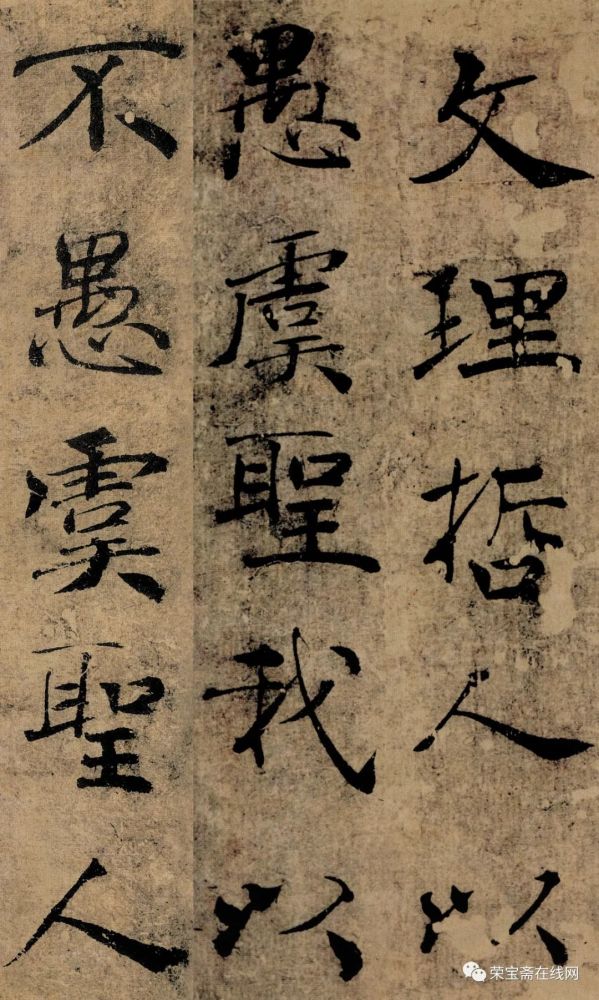 文理哲人以
愚虞聖我以
不愚虞聖人
荣宝斋在线网